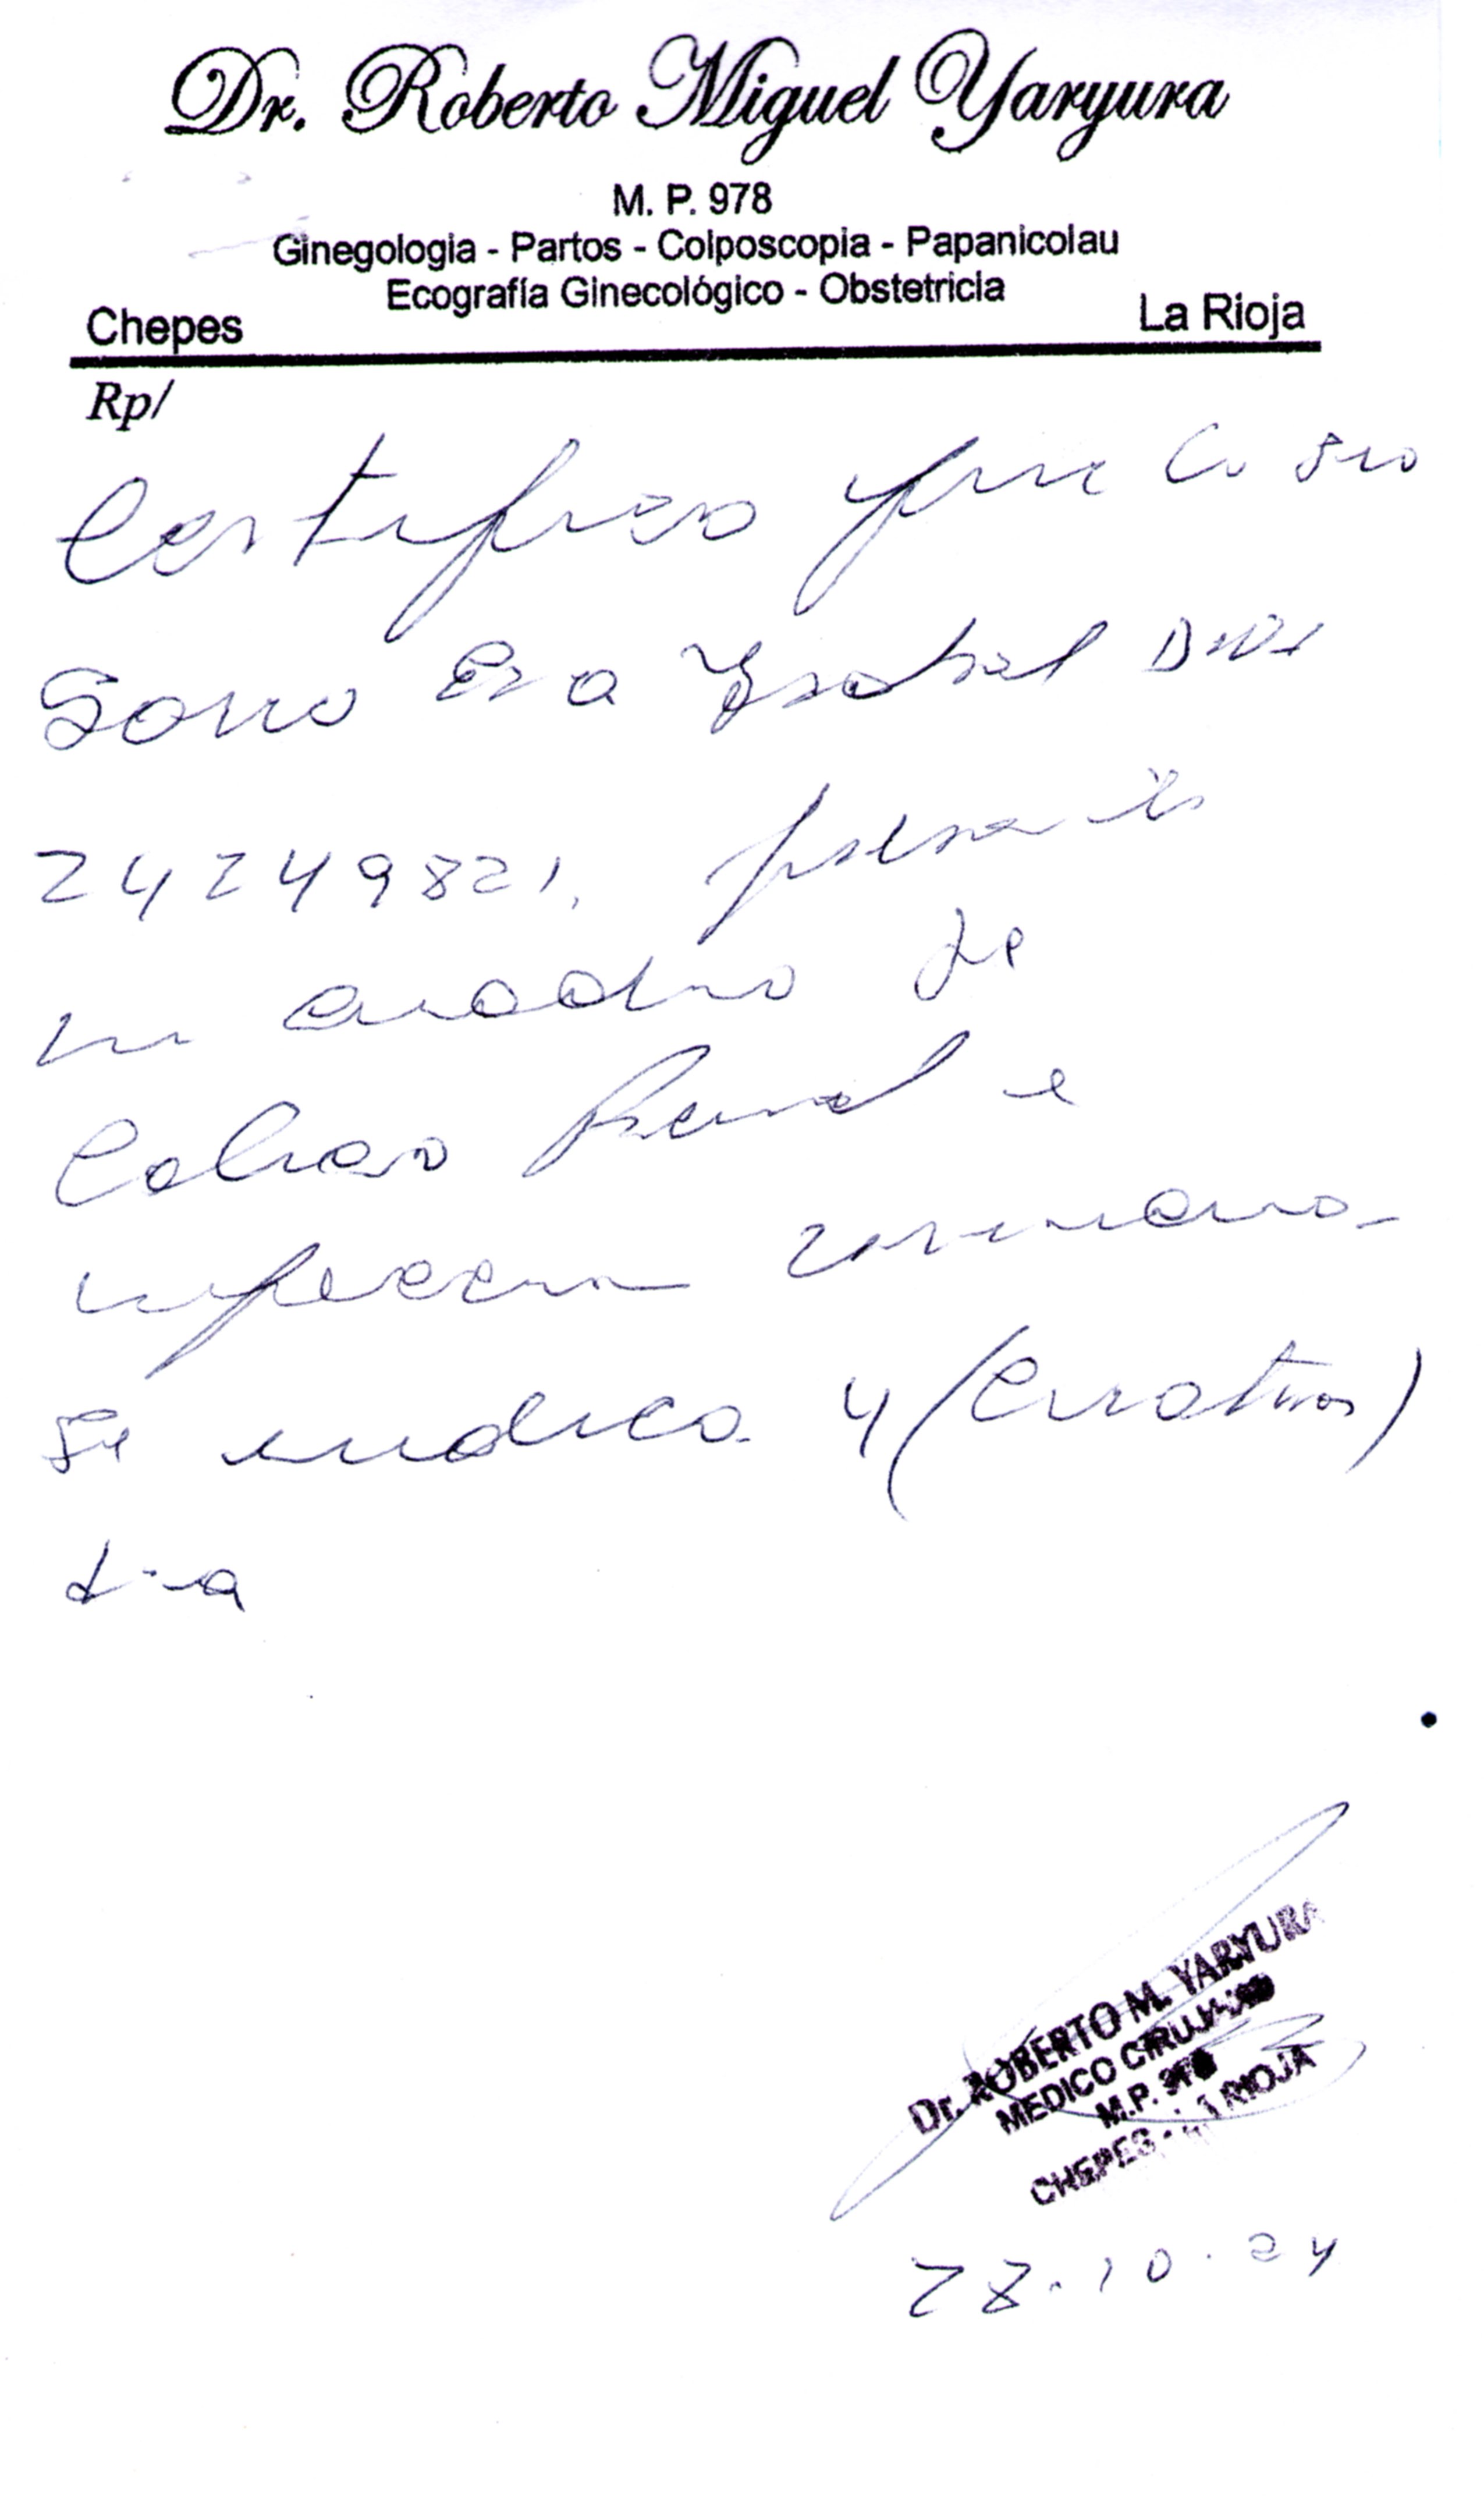 Dr. Roberto Miguel Yaryura
M. P. 978
Ginegologia - Partos - Colposcopia - Papanicolau
Ecografía Ginecológico - Obstetricia
Chepes La Rioja
Rp/
Certifico que la Sra
Eva Ysabel DNI
24249821, presenta
un cuadro de
Colico Renal e
infeccion urinaria.
Se indica 4 (cuatro)
Dr. ROBERTO M. YARYURA
MEDICO CIRUJANO
M.P. 978
CHEPES - LA RIOJA
28.10.24